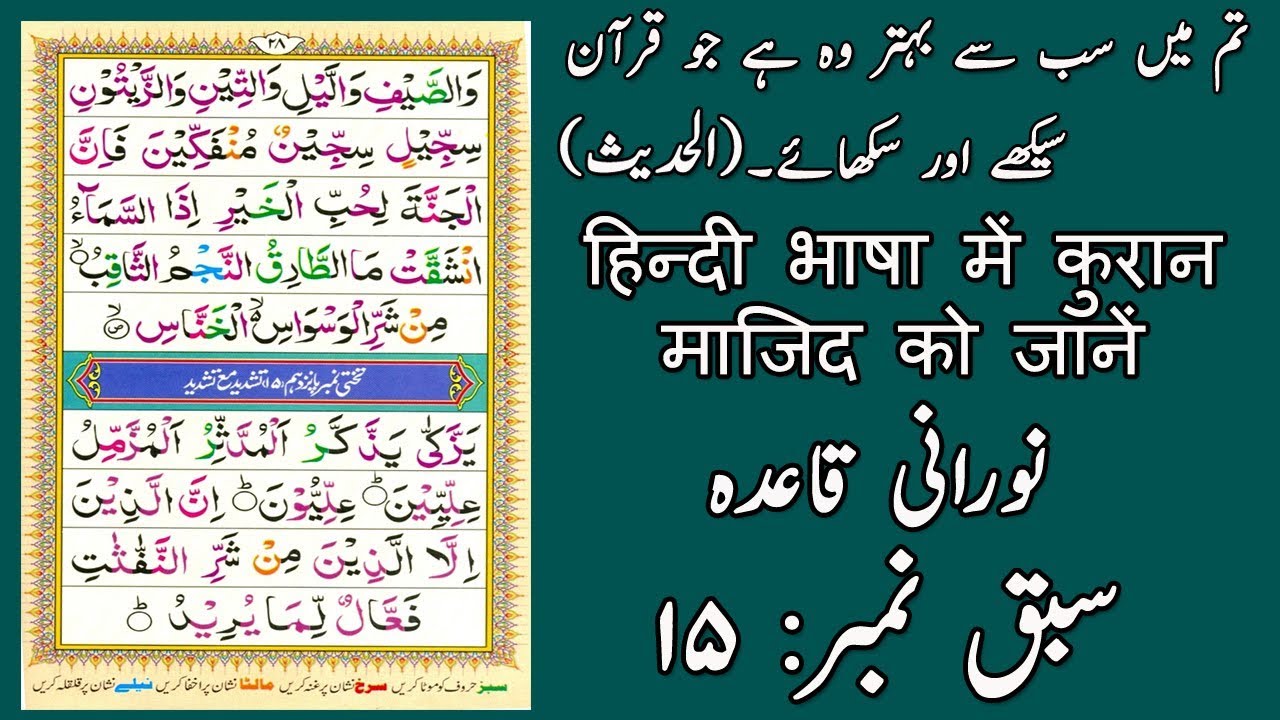 ٢٨
وَالصَّيْفِ وَالَّيْلِ وَالتِّيْنِ وَالزَّيْتُوْنِ
سِجِّيْلٍ سِجِّيْنٌ مُنْفَكِّيْنَ فَاِنَّ
الْجَنَّةَ لِحُبِّ الْخَيْرِ اِذَا السَّمَآءُ
انْشَقَّتْ مَا الطَّارِقُ النَّجْمُ الثَّاقِبُ ۙ
مِنْ شَرِّ الْوَسْوَاسِ ۙ الْخَنَّاسِ
تختی نمبر پانزدہم (۱۵) تشدید مع تشدید
يَزَّكّٰى يَذَّكَّرُ الْمُدَّثِّرُ الْمُزَّمِّلُ
عِلِّيِّيْنَ ؕ عِلِّيُّوْنَ ؕ اِنَّ الَّذِيْنَ
اِلَّا الَّذِيْنَ مِنْ شَرِّ النَّفّٰثٰتِ
فَعَّالٌ لِّمَا يُرِيْدُ ؕ
سبز حروف کو موٹا کریں سرخ نشان پر غنہ کریں مالٹا نشان پر اخفا کریں نیلے نشان پر قلقلہ کریں
تم میں سب سے بہتر وہ ہے جو قرآن
سیکھے اور سکھائے۔ (الحدیث)
हिन्दी भाषा में कुरान
माजिद को जानें
نورانی قاعدہ
سبق نمبر: ۱۵